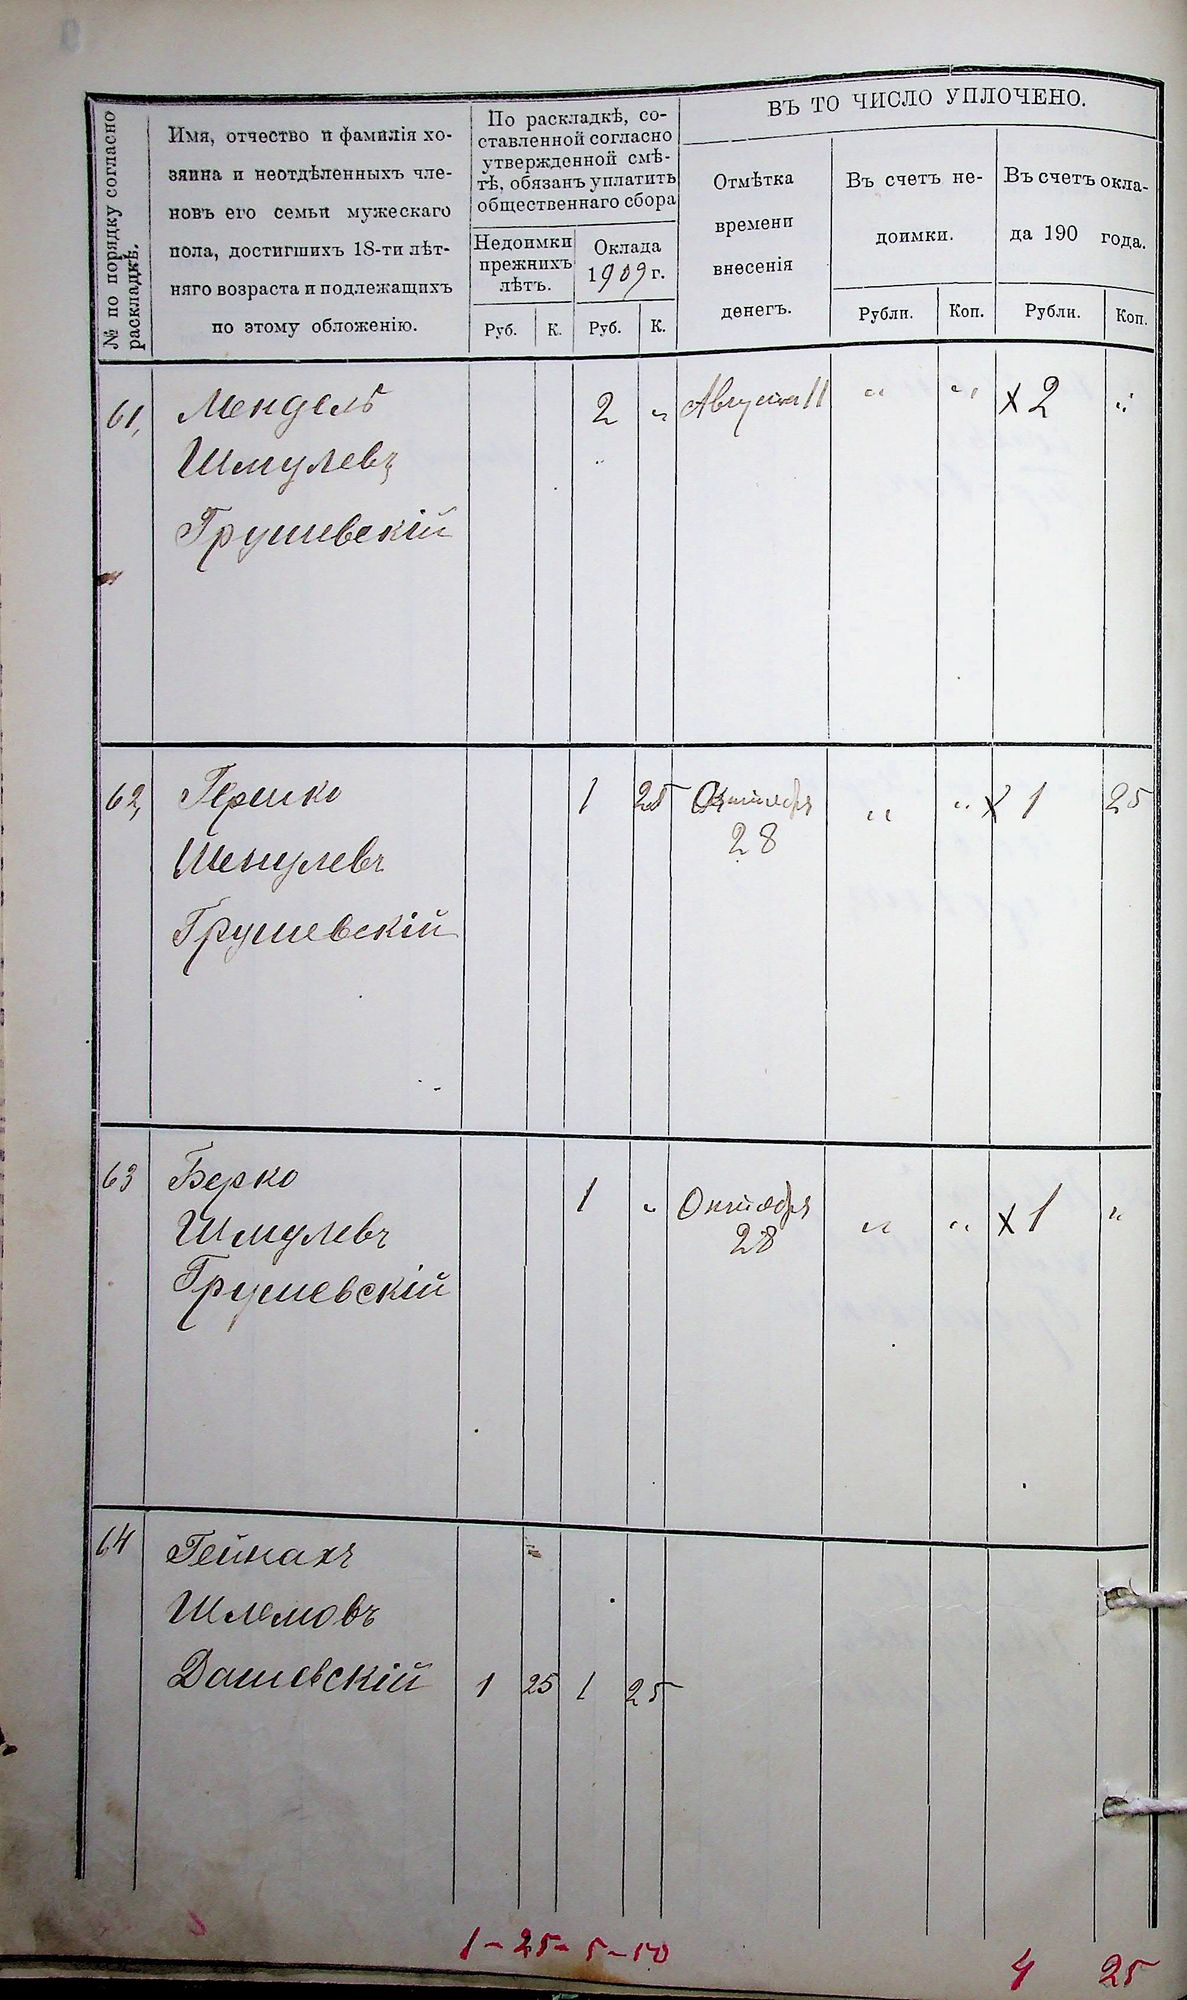 № по порядку согласно
раскладкѣ.
Имя, отчество и фамилія хо-
зяина и неотдѣленныхъ чле-
новъ его семьи мужескаго
пола, достигшихъ 18-ти лѣт-
няго возраста и подлежащихъ
по этому обложенію.
По раскладкѣ, со-
ставленной согласно
утвержденной смѣ-
тѣ, обязанъ уплатить
общественнаго сбора
Недоимки
прежнихъ
лѣтъ.
Оклада
1909 г.
Руб. К. Руб. К.
ВЪ ТО ЧИСЛО УПЛОЧЕНО.
Отмѣтка
времени
внесенія
денегъ.
Въ счетъ не-
доимки.
Въ счетъ окла-
да 190 года.
Рубли. Коп. Рубли. Коп.
61, Мендель 2 „ Августа 11 „ „ х 2 „
Шмулевъ
Грушевскій
62, Гершко 1 25 Октября „ „ х 1 25
28
Шмулевъ
Грушевскій
63 Берко 1 „ Октября „ „ х 1 „
28
Шмулевъ
Грушевскій
64 Гейнахъ
Шлемовъ
Дашевскій 1 25 1 25
1 - 25 - 5 - 50 4 25